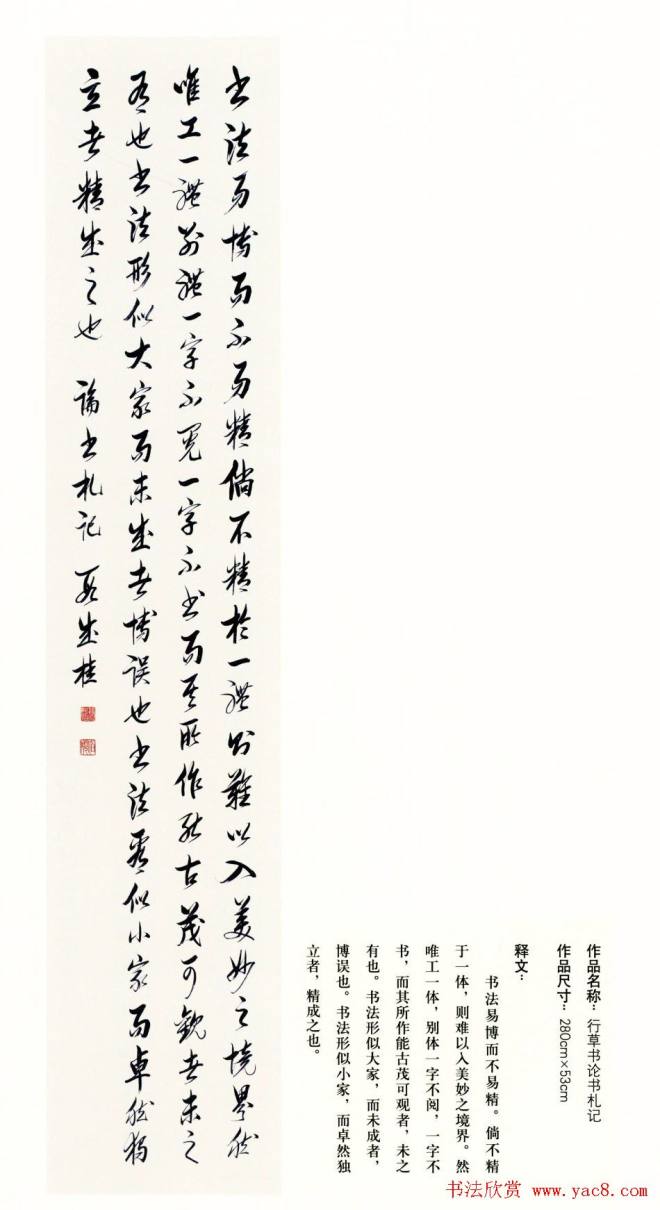 书法易博而不易精倘不精於一體则難以入美妙之境界然
唯工一體别體一字不閱一字不书而其所作能古茂可觀者未之
有也书法形似大家而未成者博误也书法看似小家而卓然独
立者精成之也 論书札记 段成桂
作品名称：行草书论书札记
作品尺寸：280cm×53cm
释文：
书法易博而不易精。倘不精
于一体，则难以入美妙之境界。然
唯工一体，别体一字不阅，一字不
书，而其所作能古茂可观者，未之
有也。书法形似大家，而未成者，
博误也。书法形似小家，而卓然独
立者，精成之也。
书法欣赏 www.yac8.com